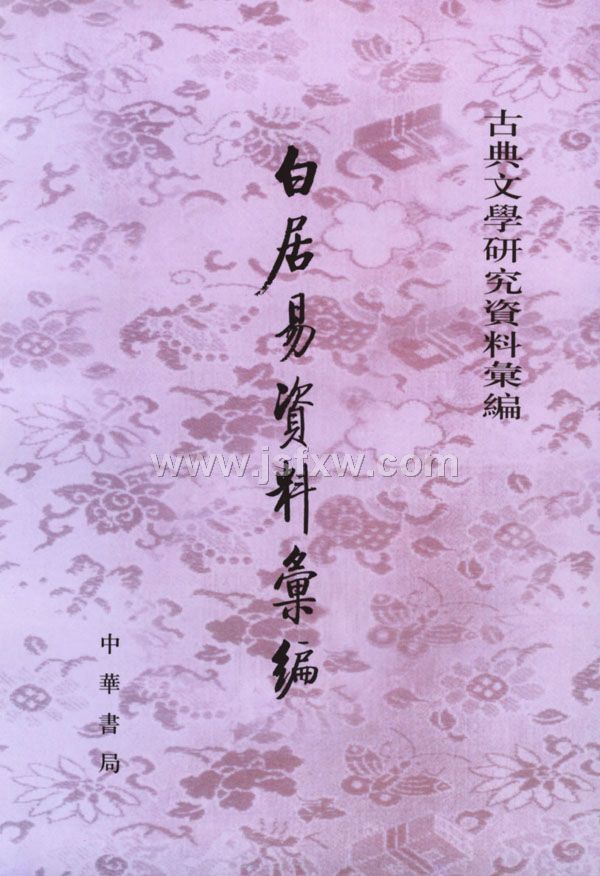 古典文學研究資料彙編
白居易資料彙編
中華書局
www.jsfxw.com